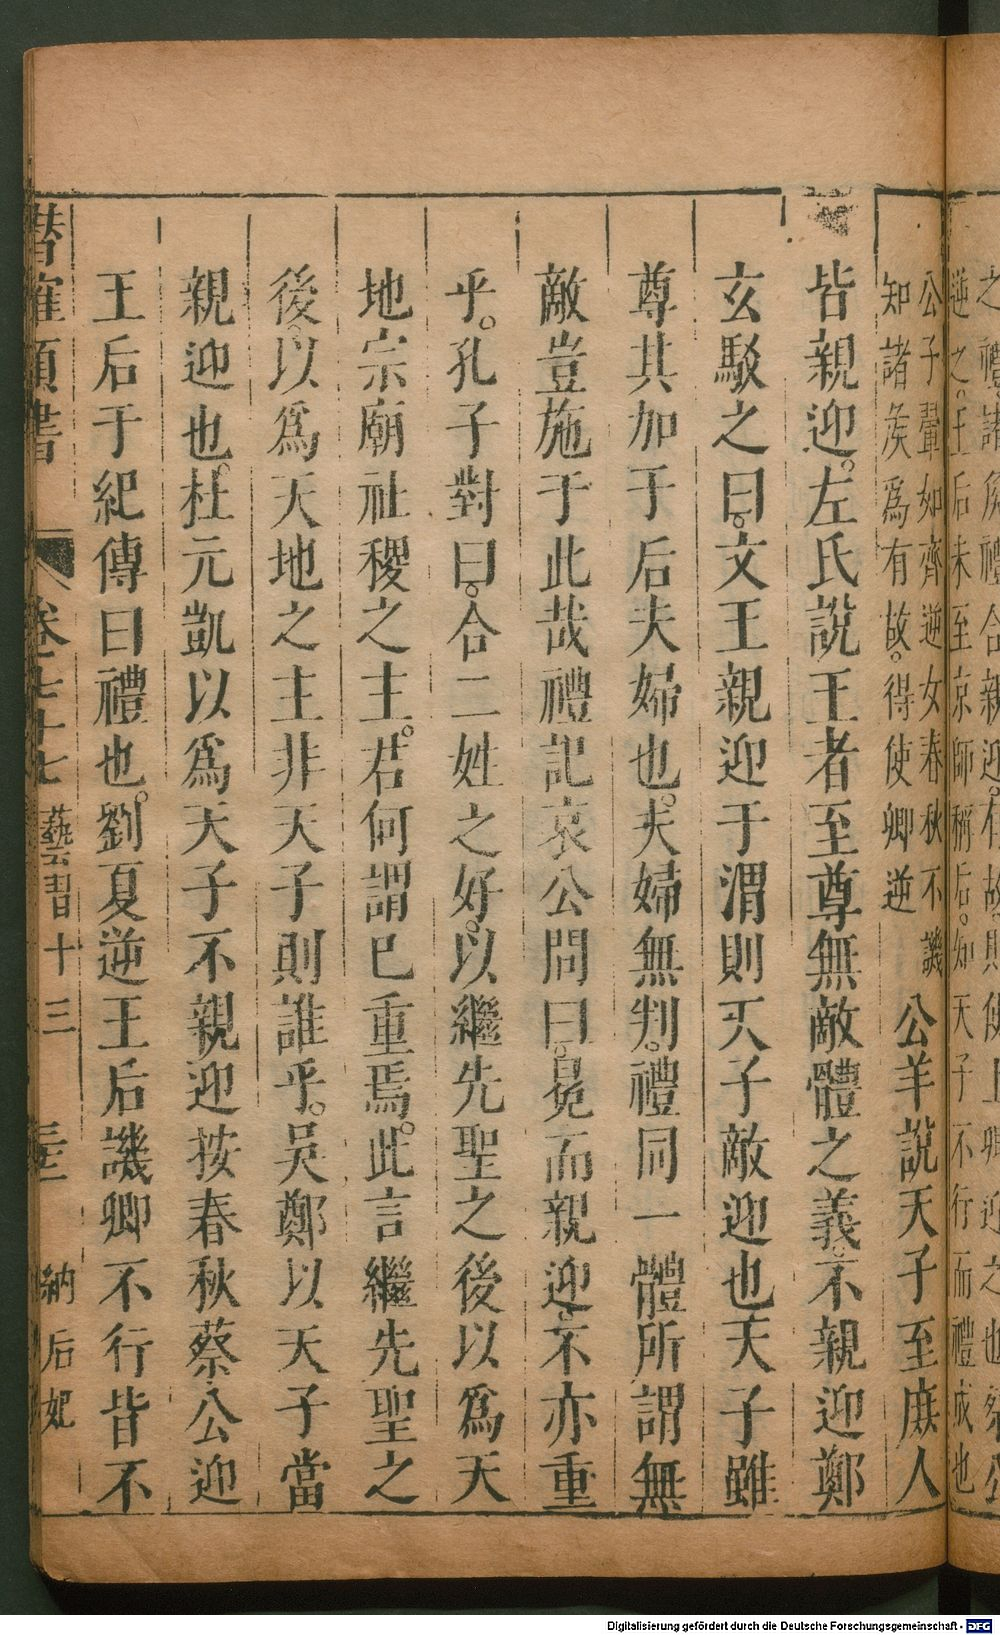 之禮諸侯禮合親迎。有故則使上卿迎之也祭公
逆之。王后未至京師稱后。知天子不行而禮成也
公子翬如齊逆女春秋不譏
知諸侯爲有故。得使卿逆
公羊說天子至庶人
皆親迎。左氏說王者至尊無敵體之義。不親迎鄭
玄駁之曰。文王親迎于渭則天子敵迎也天子雖
尊其加于后夫婦也。夫婦無判。禮同一體所謂無
敵豈施于此哉禮記哀公問曰。冕而親迎。不亦重
乎。孔子對曰。合二姓之好。以繼先聖之後以爲天
地宗廟社稷之主。君何謂已重焉。此言繼先聖之
後。以爲天地之主非天子則誰乎。吳鄭以天子當
親迎也。杜元凱以爲天子不親迎按春秋蔡公迎
王后于紀傳曰禮也。劉夏逆王后譏卿不行皆不
潛確類書 卷七十七 藝習十三 三 納后妃
Digitalisierung gefördert durch die Deutsche Forschungsgemeinschaft - DFG